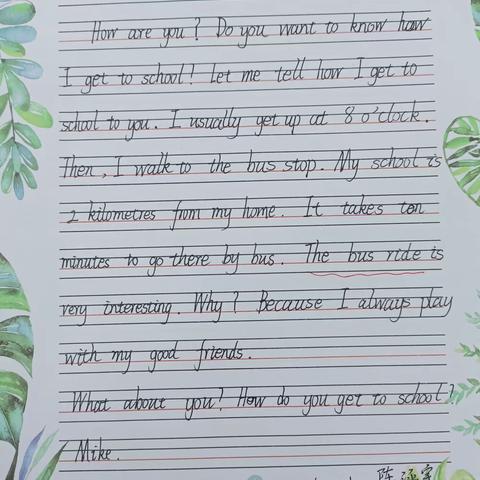 How are you? Do you want to know how
I get to school! Let me tell how I get to
school to you. I usually get up at 8 o'clock.
Then, I walk to the bus stop. My school is
2 kilometres from my home. It takes ten
minutes to go there by bus. The bus ride is
very interesting. Why? Because I always play
with my good friends.
What about you? How do you get to school?
Mike.